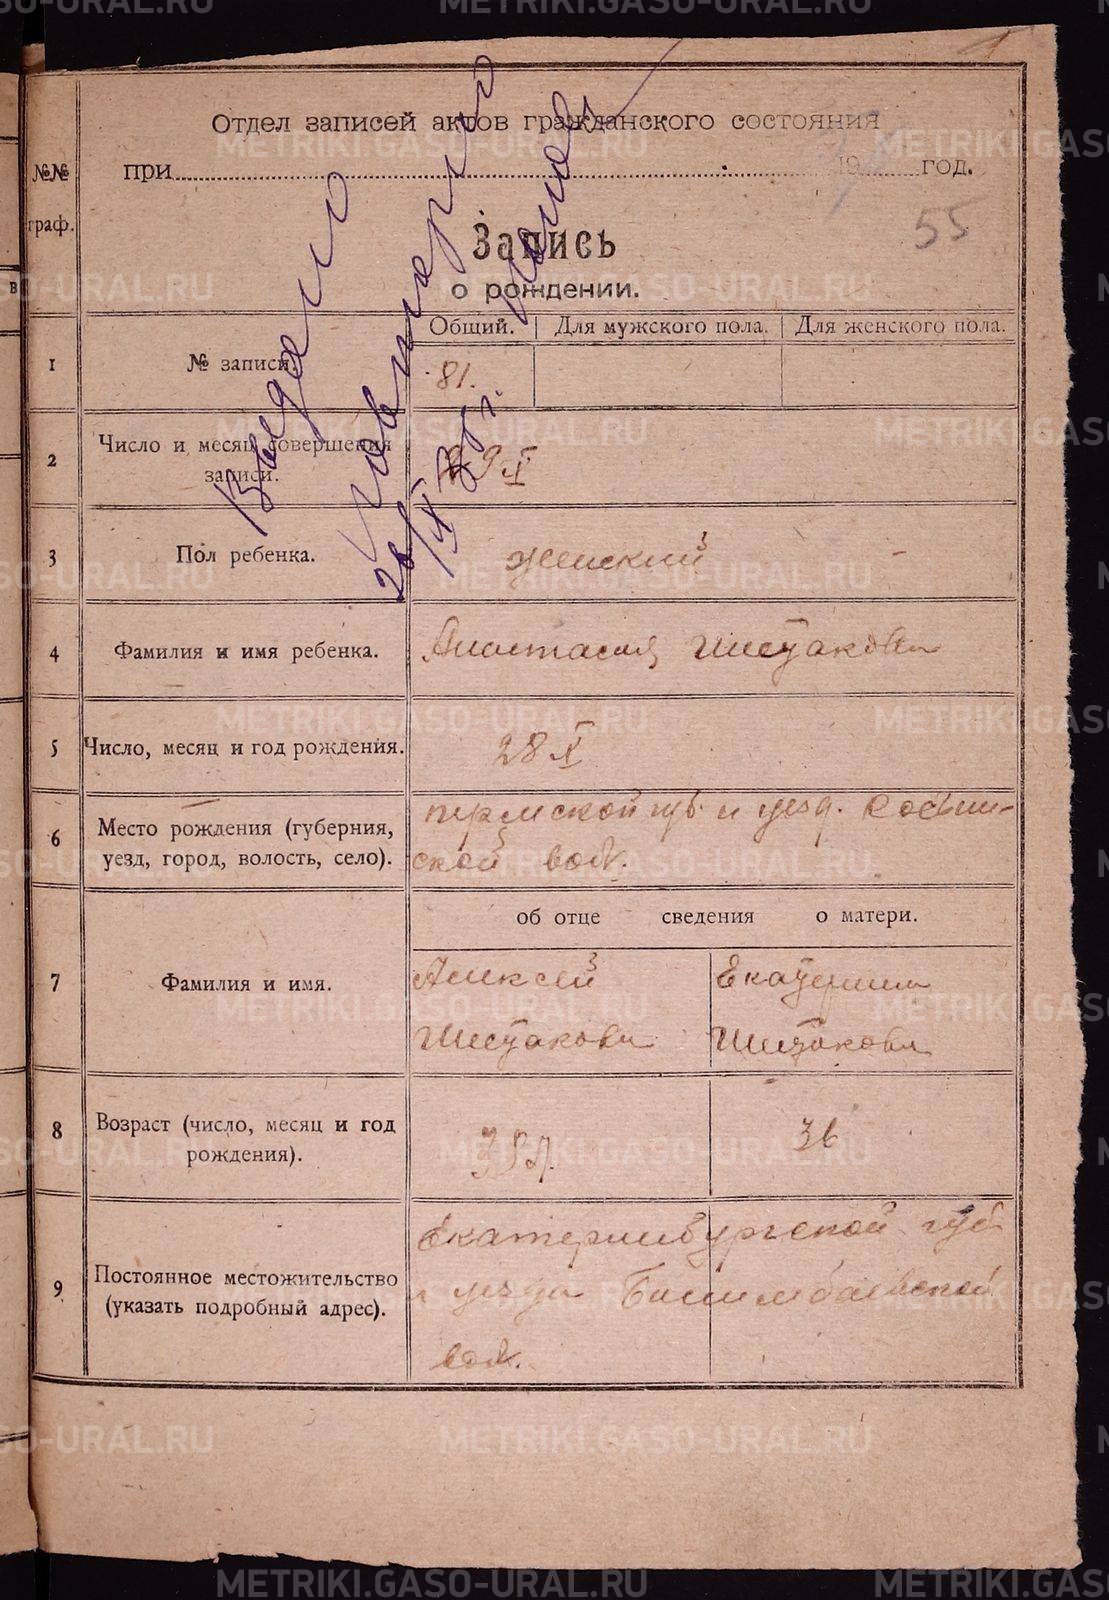 Отдел записей актов гражданского состояния
при 19 год.
№№ граф.
55
Запись
о рождении.
Общий. Для мужского пола. Для женского пола.
1 № записи. 81.
2 Число и месяц совершения записи. 29 X
3 Пол ребенка. женский
4 Фамилия и имя ребенка. Анастасия Шестакова
5 Число, месяц и год рождения. 28 X
6 Место рождения (губерния, пермской губ. и уезд.
уезд, город, волость, село). ской вол.
об отце сведения о матери.
7 Фамилия и имя. Алексей Екатерина
Шестаковы Шестакова
8 Возраст (число, месяц и год 39 л. 36
рождения).
Екатеринбургской губ
9 Постоянное местожительство и уезда Билимбаевской
(указать подробный адрес).
вол.
Выдено
повторно
METRIKI.GASO-URAL.RU